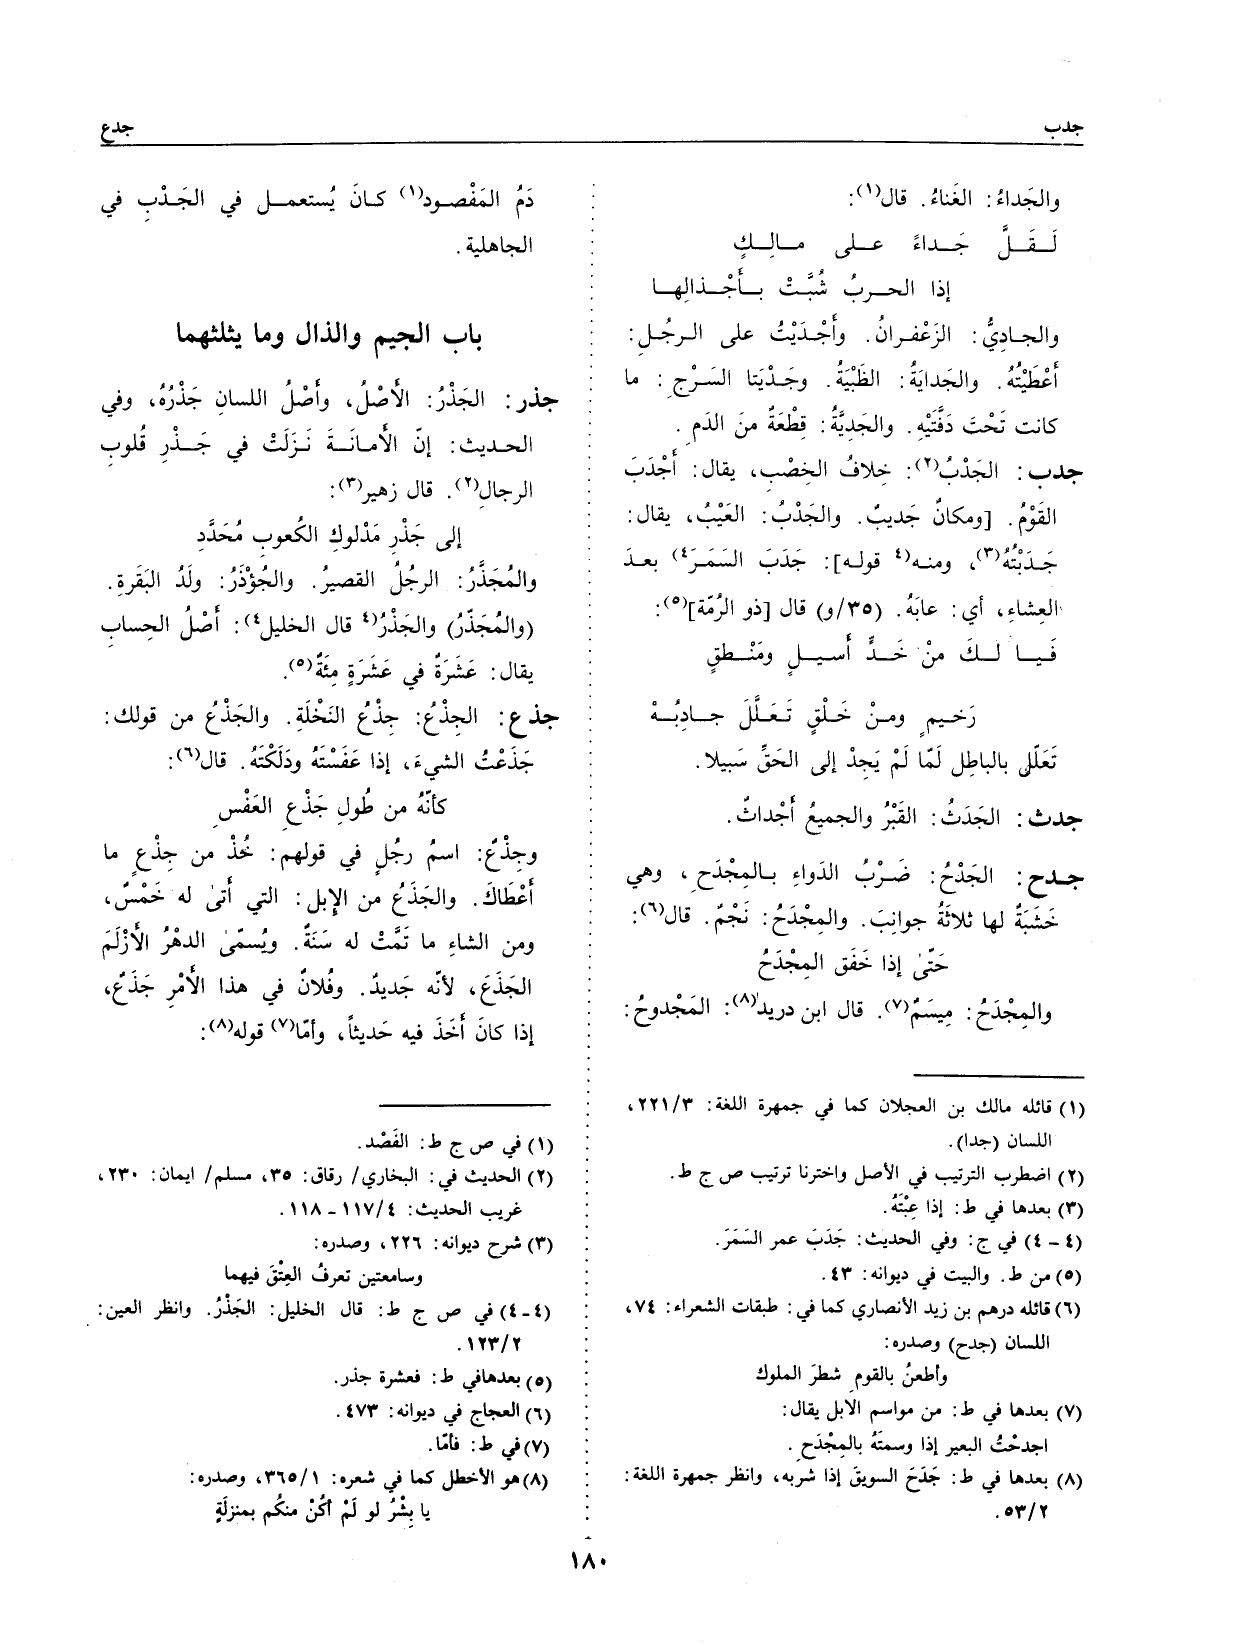 جدب
جدع
والجَداءُ: الغَناءُ. قال(١):
لَـقَـلَّ جَـداءً عـلـى مـالـكٍ
إذا الحـربُ شُبَّـتْ بـأَجْـذالِهـا
والجـادِيُّ: الزَعْفـرانُ. وأَجْـدَيْتُ على الـرجُـلِ:
أَعْطَيْتُهُ. والجَدايَةُ: الظَبْيَةُ. وجَـدْيَتا السَـرْجِ: ما
كانت تَحْتَ دَفَّتَيْهِ. والجَدِيَّةُ: قِطْعَةٌ مـنَ الدَم.
جدب: الجَدْبُ(٢): خِلافُ الخِصْبِ، يقال: أَجْدَبَ
القَوْمُ. [ومكانٌ جَديبٌ. والجَدْبُ: العَيْبُ، يقال:
جَـدَبْتُهُ(٣)، ومنـه(٤ قولـه]: جَدَبَ السَّمَرَ٤) بعـدَ
العِشاءِ، أي: عابَهُ. (٣٥/و) قال [ذو الرُمّة](٥):
فَـيـا لَـكَ مـنْ خَـدٍّ أَسـيـلٍ ومَنْـطِقٍ
رَخـيـمٍ ومـنْ خَـلْقٍ تَـعَـلَّلَ جـادِبُـهْ
تَعَلّل بالباطِلِ لَمّا لَمْ يَجِدْ إلى الحَقِّ سَبيلا.
جدث: الجَدَثُ: القَبْرُ والجميعُ أَجْداثٌ.
جـدح: الجَدْحُ: ضَـرْبُ الدَواءِ بـالمِجْدَحِ، وهي
خَشَبَةٌ لها ثَلاثَةُ جوانِبَ. والمِجْدَحُ: نَجْمٌ. قال(٦):
حَتّىٰ إذا خَفَق المِجْدَحُ
والمِجْدَحُ: مِيسَمٌ(٧). قال ابن دريد(٨): المَجْدوحُ:
(١) قائله مالك بن العجلان كما في جمهرة اللغة: ٢٢١/٣،
اللسان (جدا).
(٢) اضطرب الترتيب في الأصل واخترنا ترتيب ص ج ط.
(٣) بعدها في ط: إذا عِبْتَهُ.
(٤ - ٤) في ج: وفي الحديث: جَدَبَ عمر السَمَرَ.
(٥) من ط. والبيت في ديوانه: ٤٣.
(٦) قائله درهم بن زيد الأنصاري كما في: طبقات الشعراء: ٧٤،
اللسان (جدح) وصدره:
وأطعنُ بالقومِ شطرَ الملوك
(٧) بعدها في ط: من مواسم الابل يقال:
اجدحْتُ البعير إذا وسمتَهُ بالمِجْدَح.
(٨) بعدها في ط: جَدَحَ السويقَ إذا شربه، وانظر جمهرة اللغة:
٥٣/٢.
دَمُ المَفْصود(١) كـانَ يُستعمـل في الجَـدْبِ في
الجاهلية.
باب الجيم والذال وما يثلثهما
جذر: الجَذْرُ: الأَصْلُ، وأَصْلُ اللسانِ جَذْرُهُ، وفي
الحـديث: إنّ الأَمـانَـةَ نَـزَلَتْ في جَـذْرِ قُلوبِ
الرجال(٢). قال زهير(٣):
إلى جَذْرِ مَدْلوكِ الكُعوبِ مُحَدَّدِ
والمُجَذَّرُ: الرجُلُ القصيرُ. والجُؤْذَرُ: ولَدُ البَقَرةِ.
(والمُجَذّرُ) والجَذْرُ(٤ قال الخليل٤): أَصْلُ الحِسابِ
يقال: عَشَرَةٌ في عَشَرَةٍ مِئَةٌ(٥).
جذع: الجِذْعُ: جِذْعُ النَخْلَةِ. والجَذْعُ من قولك:
جَذَعْتُ الشيءَ، إذا عَفَسْتَهُ ودَلَكْتَهُ. قال(٦):
كأنّهُ من طُولِ جَذْعِ العَفْسِ
وجِذْعٌ: اسمُ رجُلٍ في قولهم: خُذْ من جِذْعٍ ما
أَعْطَاكَ. والجَذَعُ من الإبل: التي أَتىٰ له خَمْسٌ،
ومن الشاءِ ما تَمَّتْ له سَنَةٌ. ويُسمّىٰ الدهْرُ الأَزْلَمَ
الجَذَعَ، لأنّه جَديدٌ. وفُلانٌ في هذا الأَمْرِ جَذَعٌ،
إذا كانَ أَخَذَ فيه حَديثاً، وأمّا(٧) قوله(٨):
(١) في ص ج ط: الفَصْد.
(٢) الحديث في: البخاري/ رقاق: ٣٥، مسلم/ ايمان: ٢٣٠،
غريب الحديث: ١١٧/٤ - ١١٨.
(٣) شرح ديوانه: ٢٢٦، وصدره:
وسامعتين تعرفُ العِتْقَ فيهما
(٤-٤) في ص ج ط: قال الخليل: الجَذْرُ. وانظر العين:
١٢٣/٢.
(٥) بعدهافي ط: فعشرة جذر.
(٦) العجاج في ديوانه: ٤٧٣.
(٧) في ط: فأمّا.
(٨) هو الأخطل كما في شعره: ٣٦٥/١، وصدره:
يا بِشْرُ لو لَمْ أكُنْ منكُم بمنزلَةٍ
١٨٠